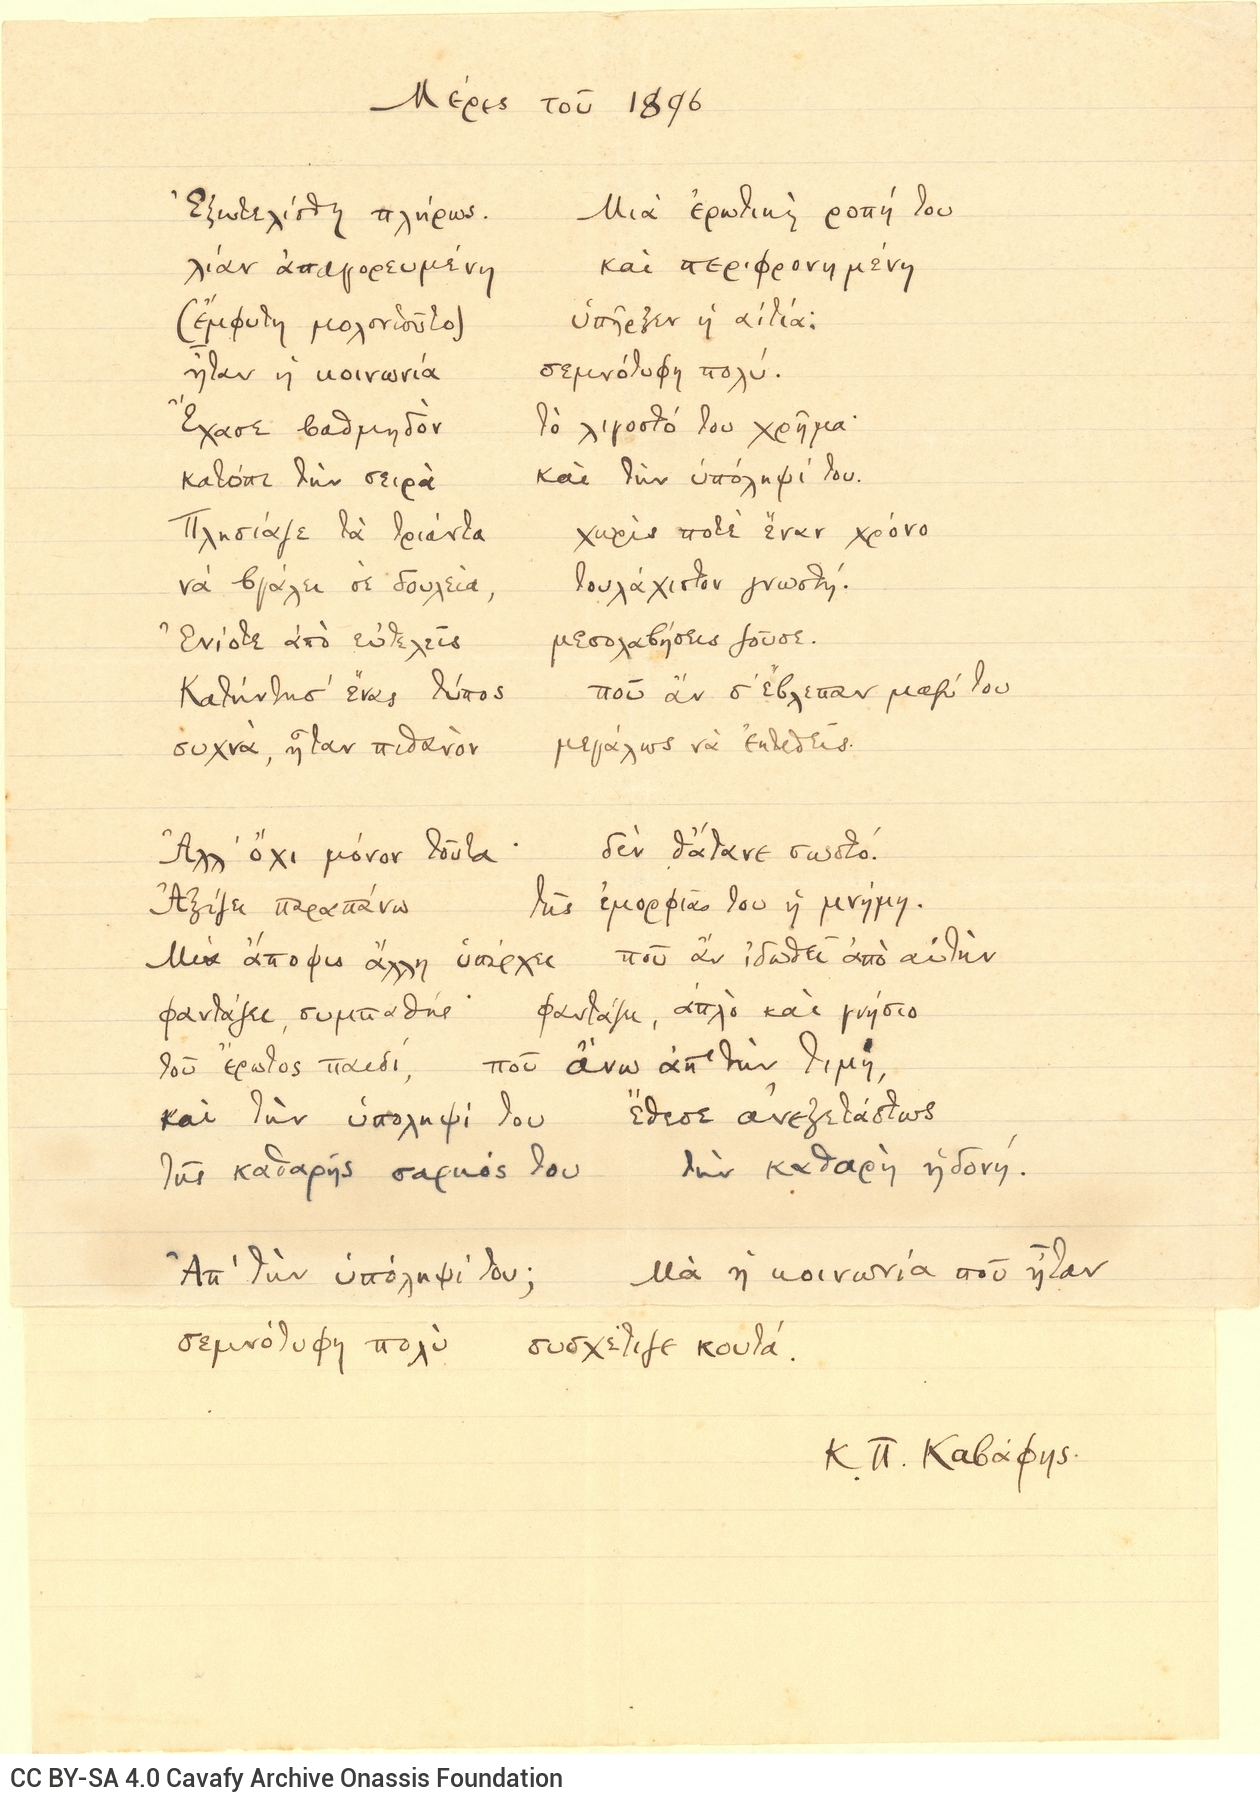 Μέρες τοῦ 1896
Ἐξευτελίσθη πλήρως. Μιὰ ἐρωτικὴ ροπή του
λίαν ἀπαγορευμένη καὶ περιφρονημένη
(ἔμφυτη μολονοτοῦτο) ὑπῆρξεν ἡ αἰτία:
ἦταν ἡ κοινωνία σεμνότυφη πολύ.
Ἔχασε βαθμηδὸν τὸ λιγοστό του χρῆμα·
κατόπι τὴν σειρὰ καὶ τὴν ὑπόληψί του.
Πλησίαζε τὰ τριάντα χωρὶς ποτὲ ἕναν χρόνο
νὰ βγάλει σὲ δουλειά, τουλάχιστον γνωστή.
Ἐνίοτε ἀπὸ εὐτελεῖς μεσολαβήσεις ζοῦσε.
Κατήντησ' ἕνας τύπος ποῦ ἂν σ' ἔβλεπαν μαζύ του
συχνά, ἦταν πιθανὸν μεγάλως νὰ ἐκτεθεῖς.
Ἀλλ' ὄχι μόνον τοῦτα· δὲν θἄτανε σωστό.
Ἀξίζει παραπάνω τῆς ἐμορφιᾶς του ἡ μνήμη.
Μιὰ ἄποψις ἄλλη ὑπάρχει ποῦ ἂν ἰδωθεῖ ἀπὸ αὐτὴν
φαντάζει, συμπαθής· φαντάζει, ἁπλὸ καὶ γνήσιο
τοῦ ἔρωτος παιδί, ποῦ ἄνω ἀπ' τὴν τιμή,
καὶ τὴν ὑπόληψί του ἔθεσε ἀνεξετάστως
τῆς καθαρῆς σαρκός του τὴν καθαρὴ ἡδονή.
Ἀπ' τὴν ὑπόληψί του; Μὰ ἡ κοινωνία ποῦ ἦταν
σεμνότυφη πολὺ συσχέτιζε κουτά.
Κ. Π. Καβάφης.
CC BY-SA 4.0 Cavafy Archive Onassis Foundation